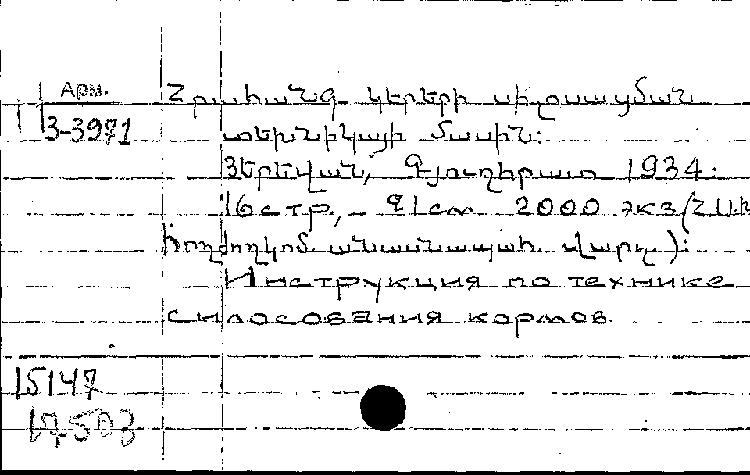 Арм.
Հրահանգ կերերի սիլոսացման
3-3971
տեխնիկայի մասին:
Յերեվան, Գյուղհրատ 1934:
16 стр., - 21 см 2000 экз (ՀՍԽՀ
հողժողկոմ. անասնապահ. վարչ.):
Инструкция по технике
силосования кормов.
15147
17503